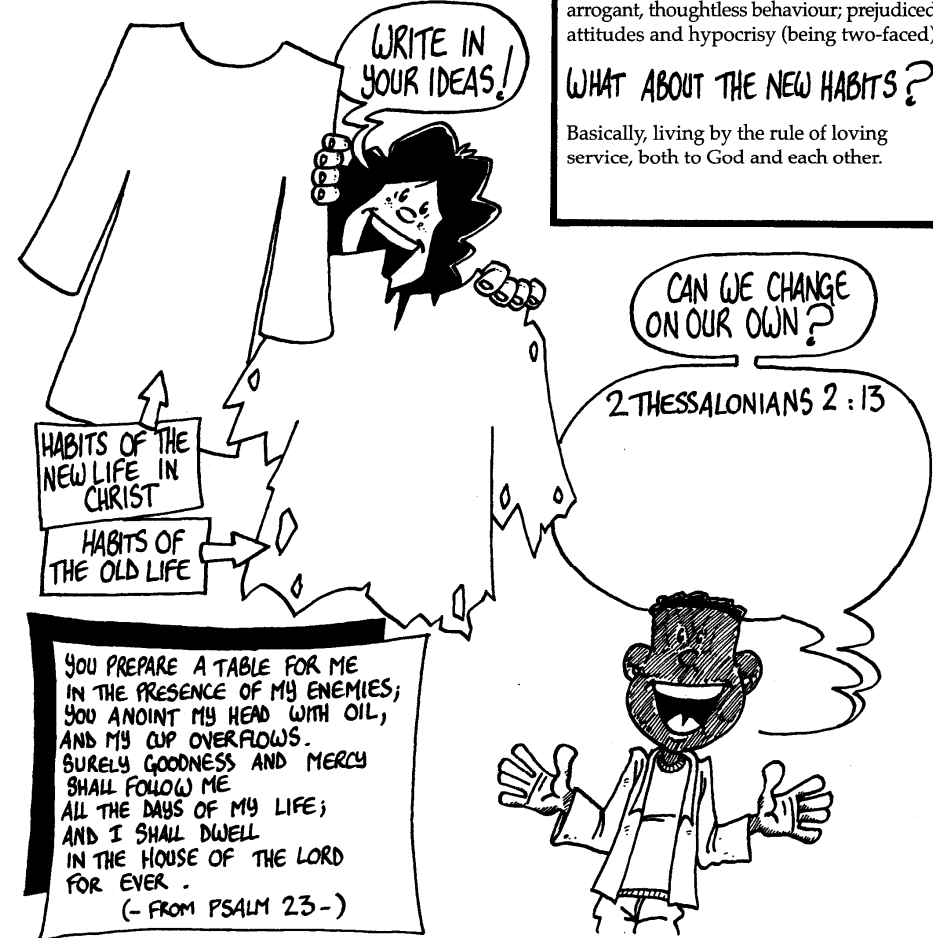 WRITE IN
YOUR IDEAS!
arrogant, thoughtless behaviour; prejudiced
attitudes and hypocrisy (being two-faced)
WHAT ABOUT THE NEW HABITS?
Basically, living by the rule of loving
service, both to God and each other.
CAN WE CHANGE
ON OUR OWN?
2 THESSALONIANS 2:13
HABITS OF THE
NEW LIFE IN
CHRIST
HABITS OF
THE OLD LIFE
YOU PREPARE A TABLE FOR ME
IN THE PRESENCE OF MY ENEMIES;
YOU ANOINT MY HEAD WITH OIL,
AND MY CUP OVERFLOWS.
SURELY GOODNESS AND MERCY
SHALL FOLLOW ME
ALL THE DAYS OF MY LIFE;
AND I SHALL DWELL
IN THE HOUSE OF THE LORD
FOR EVER.
(- FROM PSALM 23 -)